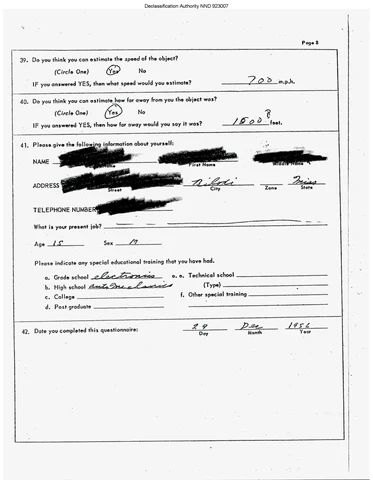 Declassification Authority NND 923007
Page 8
39. Do you think you can estimate the speed of the object?
(Circle One) Yes No
IF you answered YES, then what speed would you estimate? 700 m.p.h.
40. Do you think you can estimate how far away from you the object was?
(Circle One) Yes No
IF you answered YES, then how far away would you say it was? 1500 ? feet.
41. Please give the following information about yourself:
NAME
First Name Middle Name
ADDRESS Miss
Street City Zone State
TELEPHONE NUMBER
What is your present job?
Age 15 Sex M
Please indicate any special educational training that you have had.
a. Grade school electronics e. Technical school
b. High school auto mechanics (Type)
c. College f. Other special training
d. Post graduate
42. Date you completed this questionnaire: 29 Dec 1956
Day Month Year